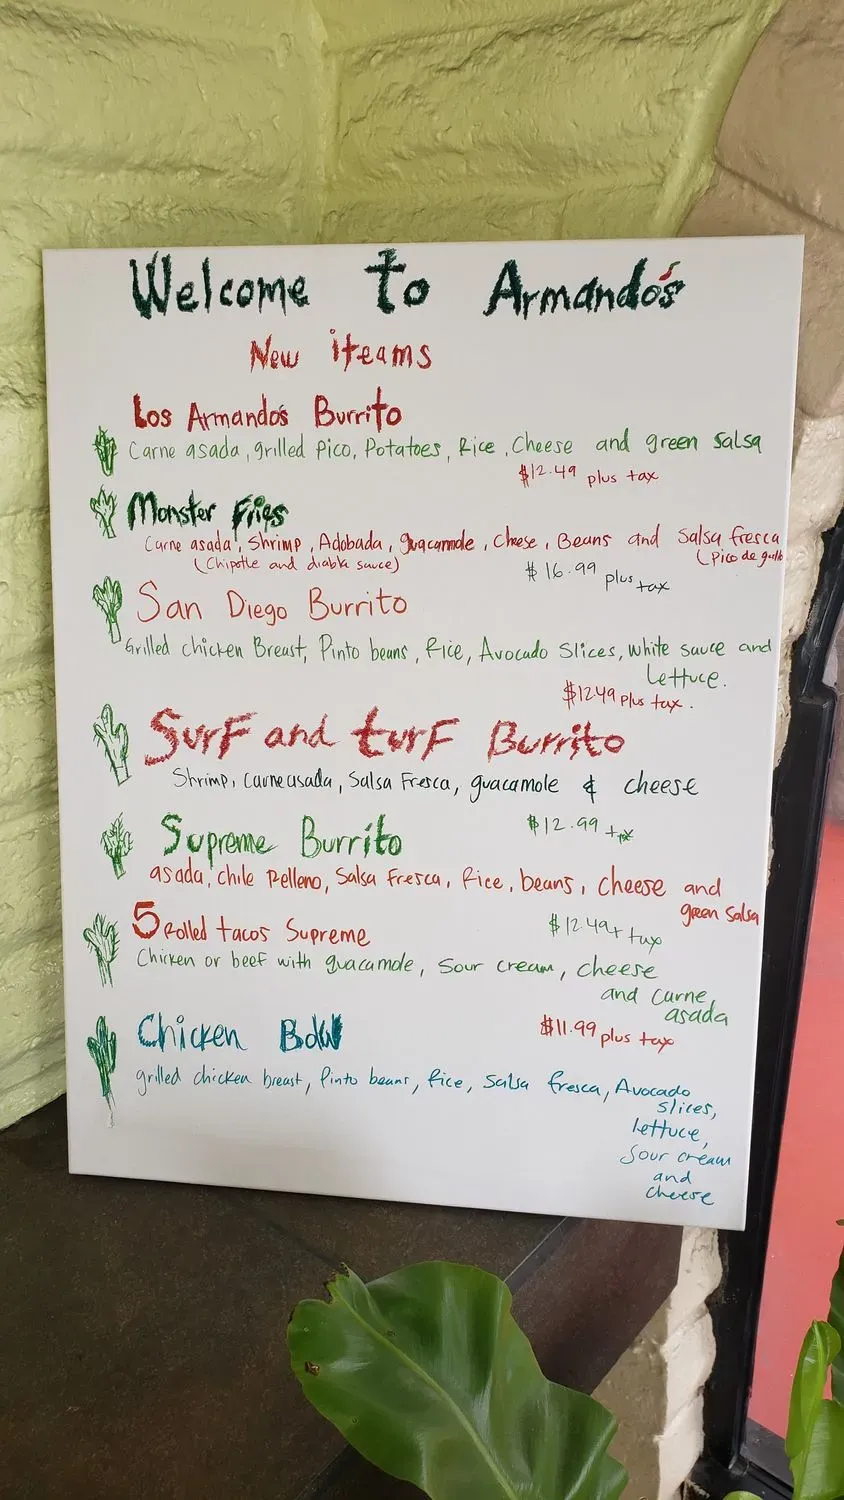 Welcome to Armando's
New iteams
Los Armando's Burrito
Carne asada, grilled Pico, Potatoes, Rice, Cheese and green salsa
$12.49 plus tax
Monster Fries
Carne asada, Shrimp, Adobada, guacamole, cheese, Beans and Salsa fresca
(Chipotle and diabla sauce)
(pico de gallo
$16.99 plus tax
San Diego Burrito
Grilled chicken Breast, Pinto beans, Rice, Avocado Slices, white sauce and
lettuce.
$12.49 plus tax.
Surf and turf Burrito
Shrimp, carne asada, Salsa Fresca, guacamole & cheese
Supreme Burrito
$12.99 + tax
asada, chile Relleno, Salsa Fresca, Rice, beans, cheese and
green salsa
5 Rolled tacos Supreme
$12.49 + tax
Chicken or beef with guacamole, Sour cream, cheese
and carne
asada
Chicken Bowl
$11.99 plus tax
grilled chicken breast, Pinto beans, Rice, Salsa fresca, Avocado
slices,
lettuce,
Sour cream
and
cheese